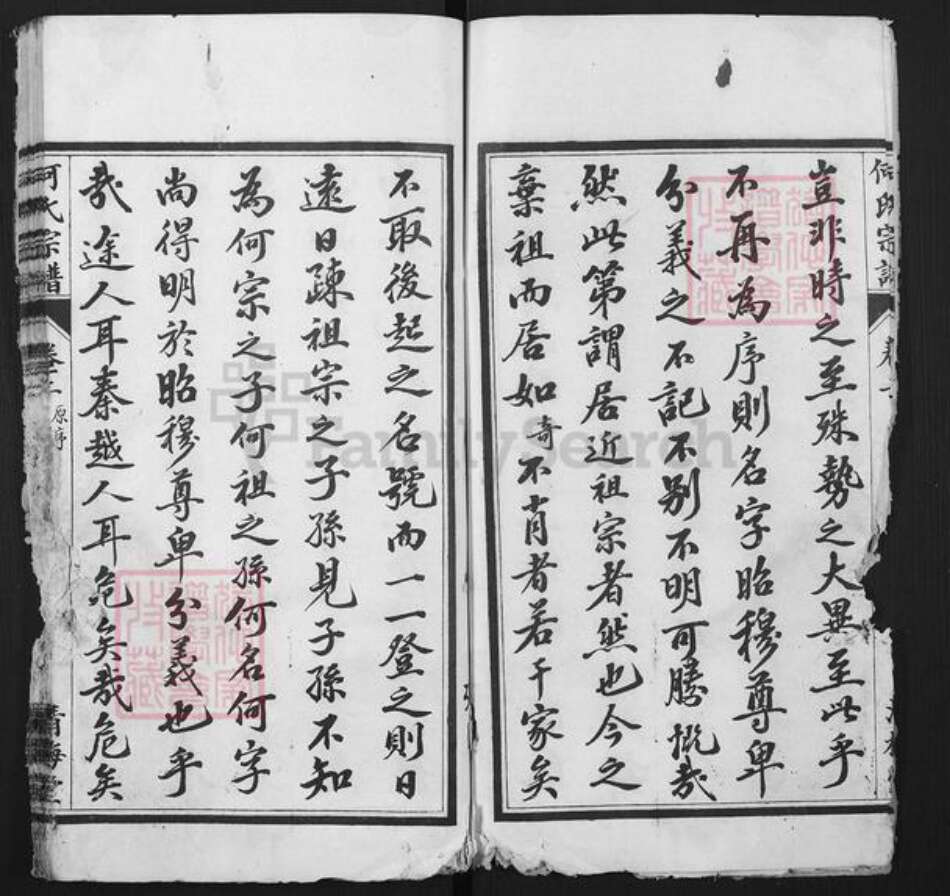 豈非時之至殊勢之大異至此乎
不再為序則名字昭穆尊卑
分義之不記不別不明可勝慨哉
然此第謂居近祖宗者然也今之
棄祖而居如奇不肖者若干家矣
不取後起之名號而一一登之則日
遠日疎祖宗之子孫見子孫不知
為何宗之子何祖之孫何名何字
尚得明於昭穆尊卑分義也乎
哉途人耳秦越人耳危矣哉危矣
何氏宗譜 卷之 原序
FamilySearch